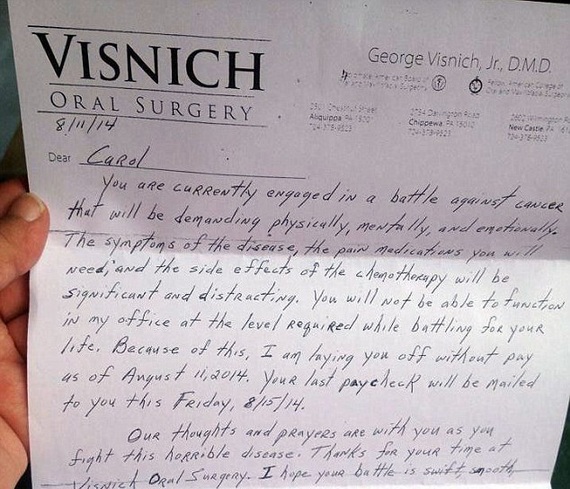 VISNICH
ORAL SURGERY
George Visnich, Jr., D.M.D.
8/11/14
Aliquippa PA
Chippewa PA
New Castle PA
724-378-9523
724-378-9523
Dear Carol
You are currently engaged in a battle against cancer
that will be demanding physically, mentally, and emotionally.
The symptoms of the disease, the pain medications you will
need, and the side effects of the chemotherapy will be
significant and distracting. You will not be able to function
in my office at the level required while battling for your
life. Because of this, I am laying you off without pay
as of August 11, 2014. Your last paycheck will be mailed
to you this Friday, 8/15/14.
Our thoughts and prayers are with you as you
fight this horrible disease. Thanks for your time at
Visnich Oral Surgery. I hope your battle is swift, smooth,